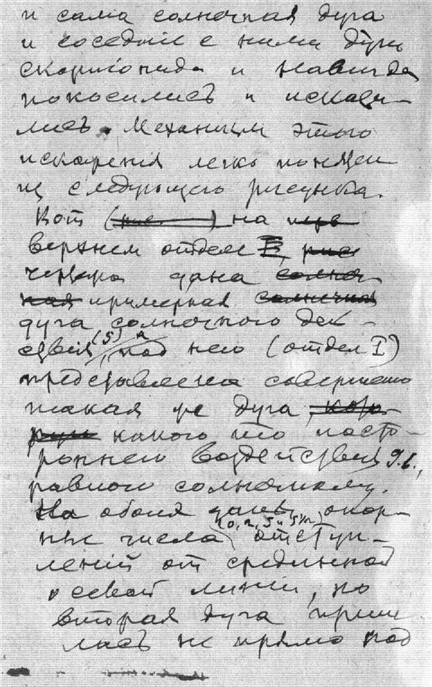 и сама солнечная дуга
и соседние с ними дуги
скорпионида и навсегда
покосились и искази-
лись. Механизм этого
искажения легко понятен
из следующего рисунка.
Вот на
верхнем отделе
чертежа дана
примерная
дуга солнечного дей-
ствия (S), а под нею (отдел I)
представлена совершенно
такая же дуга
какого то посто-
роннего воздействия
равного солнечному.
На обоих даны опор-
ные числа отступ-
лений от срединной
осевой линии, но
вторая дуга приш-
лась не прямо под